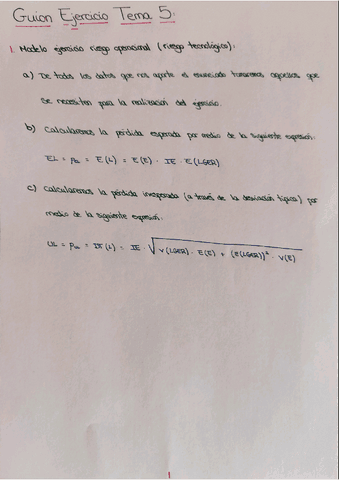 Guion Ejercicio Tema 5:
1. Modelo ejercicio riesgo operacional (riesgo tecnológico):
a) De todos los datos que nos aporte el enunciado tomaremos aquellos que
se necesiten para la realización del ejercicio.
b) Calcularemos la pérdida esperada por medio de la siguiente expresión:
EL = μ = E(L) = E(E) · IE · E(LGER)
c) Calcularemos la pérdida inesperada (a través de la desviación típica) por
medio de la siguiente expresión:
UL = = (L) = IE · √V(LGER) · E(E) + (E(LGER))² · V(E)
1